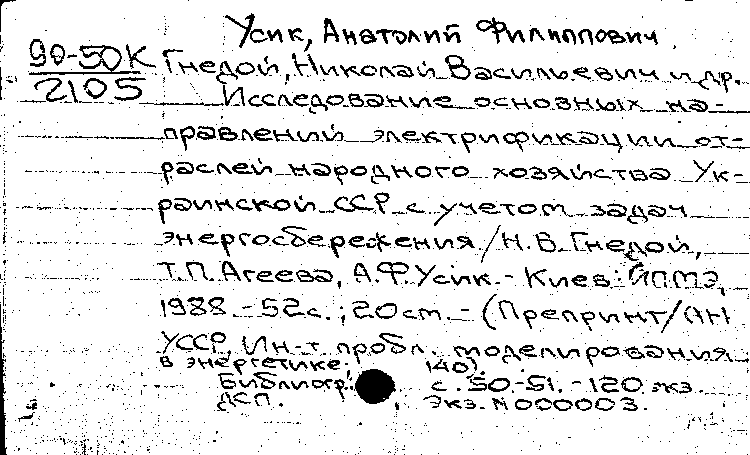 Усик, Анатолий Филиппович.
90-50К
2105
Гнедой, Николай Васильевич и др.
Исследование основных на-
правлений электрификации от-
раслей народного хозяйства Ук-
раинской ССР с учетом задач
энергосбережения / Н.В. Гнедой,
Т.П. Агеева, А.Ф. Усик. - Киев: ИПМЭ,
1988. - 52 с.; 20 см. - (Препринт / АН
УССР, Ин-т пробл. моделирования
в энергетике; 140).
Библиогр.: с. 50-51. - 120 экз.
ДСП. Экз. N 000003.